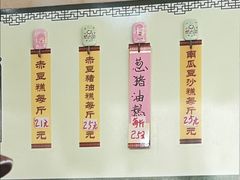 赤豆糕每斤21元
赤豆猪油糕每斤25元
葱猪油糕每斤25
南瓜豆沙糕每斤25元